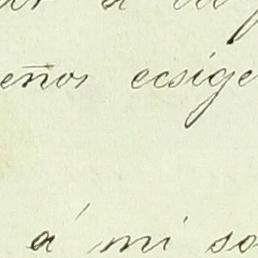 eños ecsige
á mi so